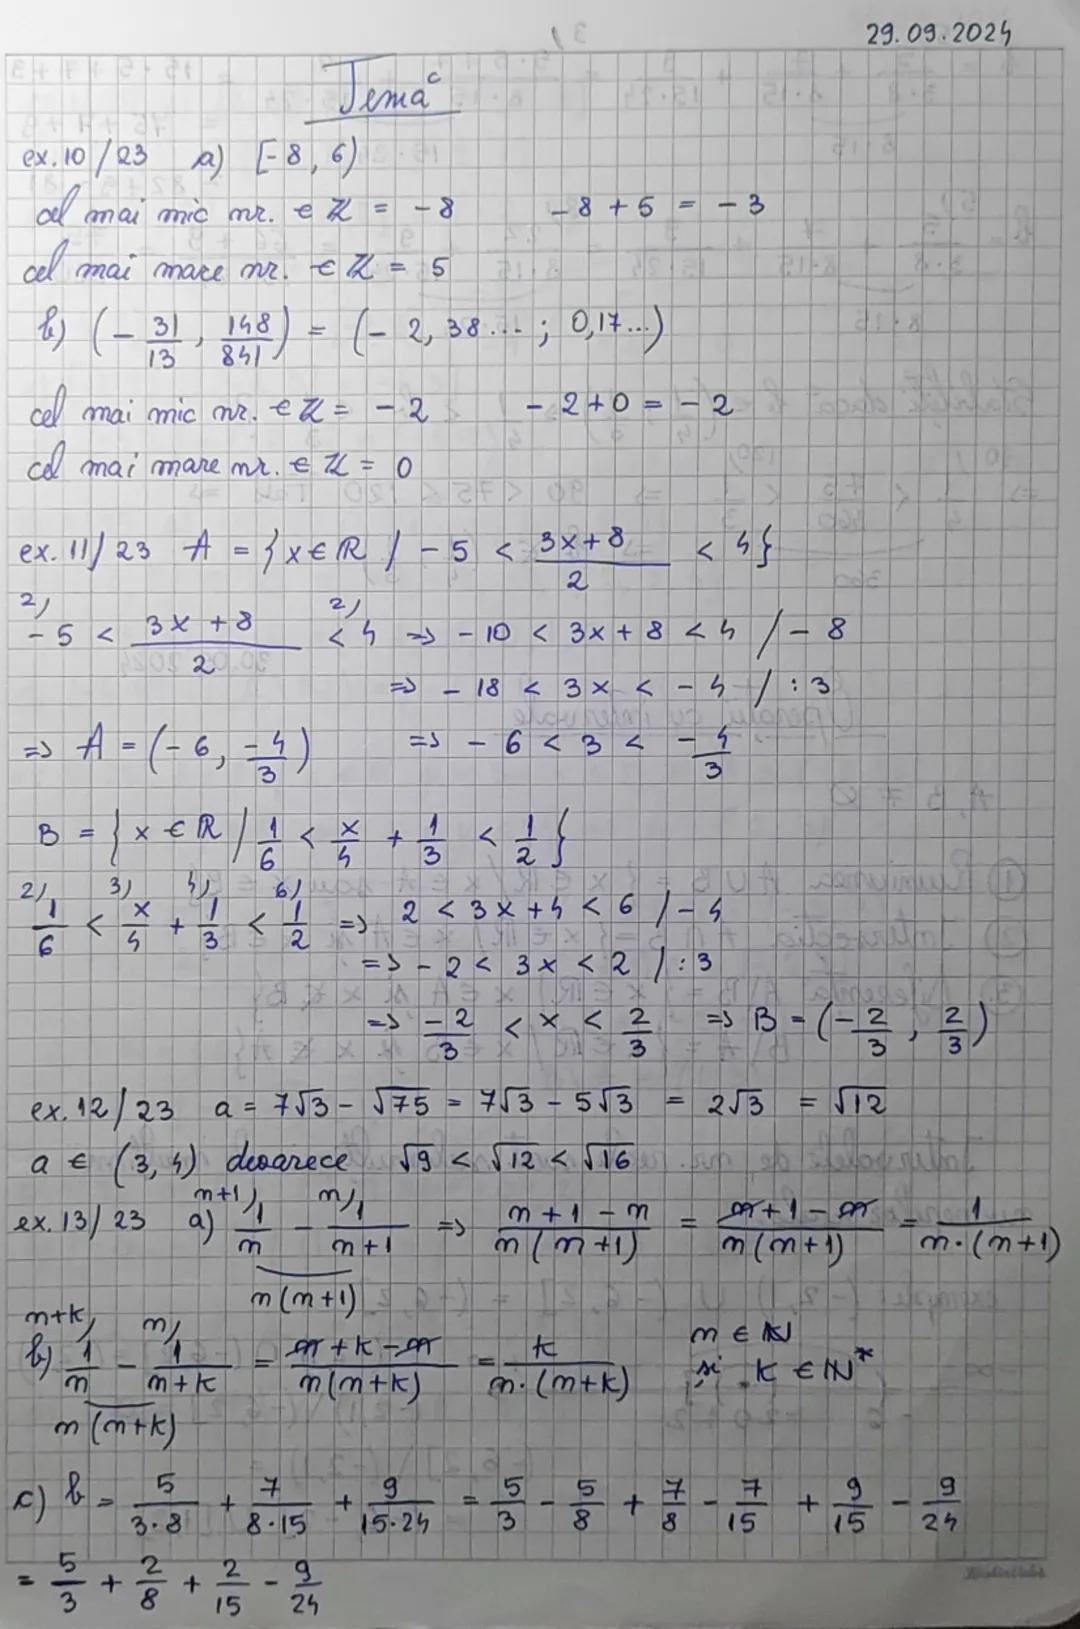 29.09.2024
Temă
ex. 10/23 a) [-8, 6)
cel mai mic nr. ∈ ℤ = -8 -8+5 = -3
cel mai mare nr. ∈ ℤ = 5
b) (-31/13, 148/841) = (-2,38...; 0,17...)
cel mai mic nr. ∈ ℤ = -2 -2+0 = -2
cel mai mare nr. ∈ ℤ = 0
ex. 11/23 A = {x ∈ ℝ / -5 < (3x+8)/2 < 4}
2) -5 < (3x+8)/2 2) < 4 => -10 < 3x+8 < 4 / -8
=> -18 < 3x < -4 / :3
=> A = (-6, -4/3) => -6 < 3 < -4/3
B = {x ∈ ℝ / 1/6 < x/4 + 1/3 < 1/2}
2) 1/6 < 3) x/4 + 4) 1/3 < 6) 1/2 => 2 < 3x+4 < 6 / -4
=> -2 < 3x < 2 / :3
=> -2/3 < x < 2/3 => B = (-2/3, 2/3)
ex. 12/23 a = 7√3 - √75 = 7√3 - 5√3 = 2√3 = √12
a ∈ (3, 4) deoarece √9 < √12 < √16
ex. 13/23 a) n+1) 1/n - n) 1/(n+1) => (n+1-n)/(n(n+1)) = (n+1-n)/(n(n+1)) = 1/(n·(n+1))
n(n+1)
b) n+k) 1/n - n) 1/(n+k) = (n+k-n)/(n(n+k)) = k/(n·(n+k)) n ∈ ℕ
și k ∈ ℕ*
n(n+k)
c) b = 5/(3·8) + 7/(8·15) + 9/(15·24) = 5/3 - 5/8 + 7/8 - 7/15 + 9/15 - 9/24
= 5/3 + 2/8 + 2/15 - 9/24